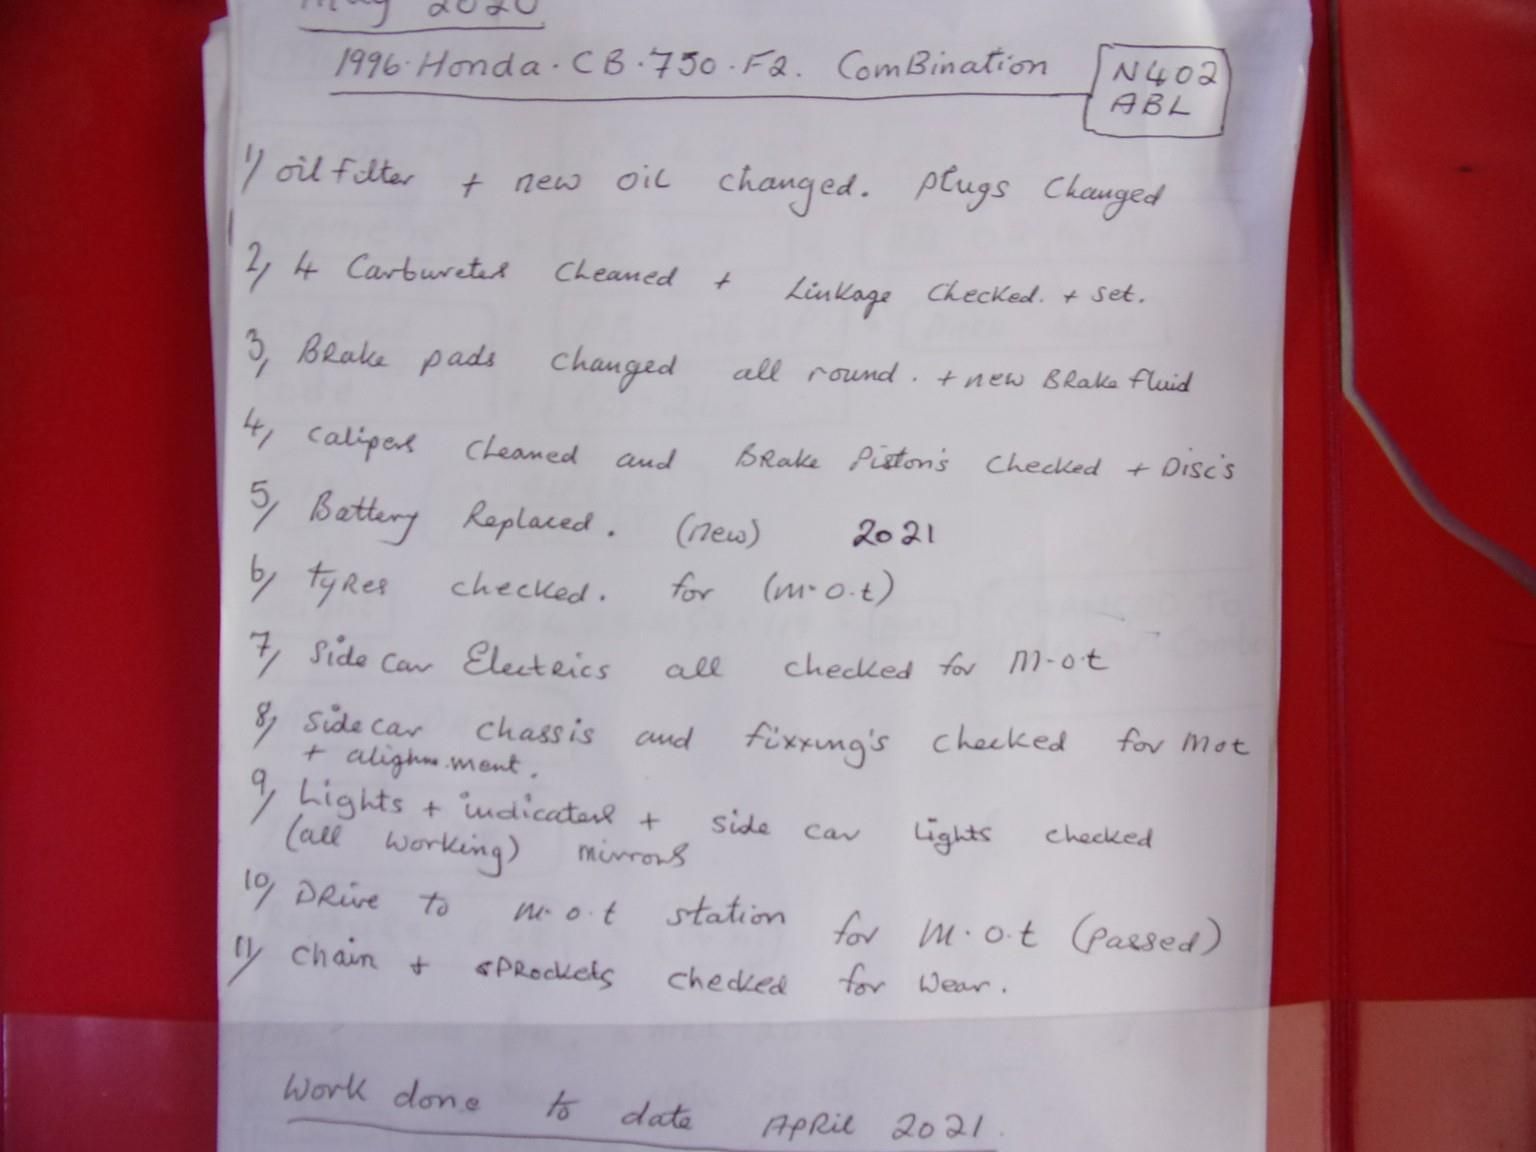 May 2020
1996·Honda·CB·750·F2. ComBination
N402
ABL
1/ oil filter + new oil changed. plugs changed
2, 4 Carburetors cleaned + Linkage checked. + set.
3, Brake pads changed all round. + new Brake fluid
4, calipers cleaned and Brake Piston's checked + Disc's
5, Battery Replaced. (new) 2021
6, tyres checked. for (m·o.t)
7, Side car Electrics all checked for M-o.t
8, Side car chassis and fixxing's checked for Mot
+ alighnment.
9, Lights + indicators + side car Lights checked
(all working) mirrors
10, Drive to m·o·t station for M·o.t (passed)
11, chain + sprockets checked for wear.
Work done to date April 2021.